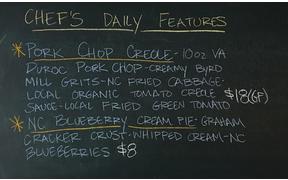 CHEF'S DAILY FEATURES
* PORK CHOP CREOLE - 10oz VA
DUROC PORK CHOP - CREAMY BYRD
MILL GRITS - NC FRIED CABBAGE -
LOCAL ORGANIC TOMATO CREOLE $18 (GF)
SAUCE - LOCAL FRIED GREEN TOMATO
* NC BLUEBERRY CREAM PIE - GRAHAM
CRACKER CRUST - WHIPPED CREAM - NC
BLUEBERRIES $8